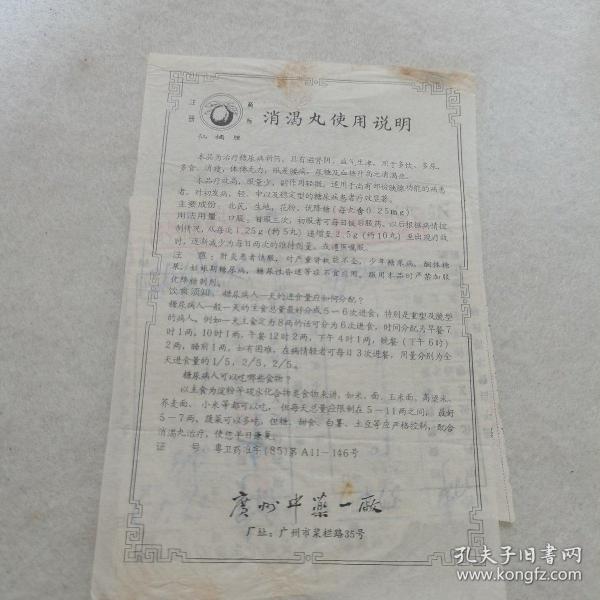 注册
商标
仙桃牌
消渴丸使用说明
本品为治疗糖尿病新药，具有滋肾阴，益气生津。用于多饮、多尿、
多食、消瘦、体倦无力、眠差腰痛、尿糖及血糖升高之消渴症。
本品疗效高，服量少，副作用轻微，适用于尚有部份胰腺功能的病患
者，对初发病、轻、中以及稳定型的糖尿病患者疗效显著。
主要成份：北芪、生地、花粉、优降糖（每丸含0.25mg）
用法用量：口服，每服三次，初服者可每日饭后服药，以后根据病情控
制情况，从每次1.25g（约5丸）递增至2.5g（约10丸）至出现消效
时，逐渐减少为每日两次的维持剂量。或遵医嘱服。
注意：肝炎患者慎服，对严重肾机能不全，少年糖尿病，酮体糖
尿，妊娠期糖尿病，糖尿性昏迷等症不宜应用。服用本品时严禁加服
优降糖制剂。
饮食须知：糖尿病人一天的进食量应如何分配？
糖尿病人一般一天的主食总量最好分成5—6次进食，特别是重型及脆型
的病人。例如一天主食定为8两的话可分为6次进食，时间分配为早餐7
时1两，10时1两，午餐12时2两，下午4时1两，晚餐（下午6时）
2两，睡前1两。如有困难，在病情轻者可每日3次进餐，用量分别为全
天进食量的1/5，2/5，2/5。
糖尿病人可以吃哪些食物？
以主食为淀粉等碳水化合物类食物来讲，如米、面、玉米面、高粱米、
荞麦面、小米等都可以吃，但每天总量应限制在5—11两之间，最好
5—7两，蔬菜可以多吃。但糖、甜食、白薯、土豆等应严格控制，配合
消渴丸治疗，使您早日康复。
证号：粤卫药准字（85）第A11—146号
广州中药一厂
厂址：广州市菜栏路35号
孔夫子旧书网
www.kongfz.com